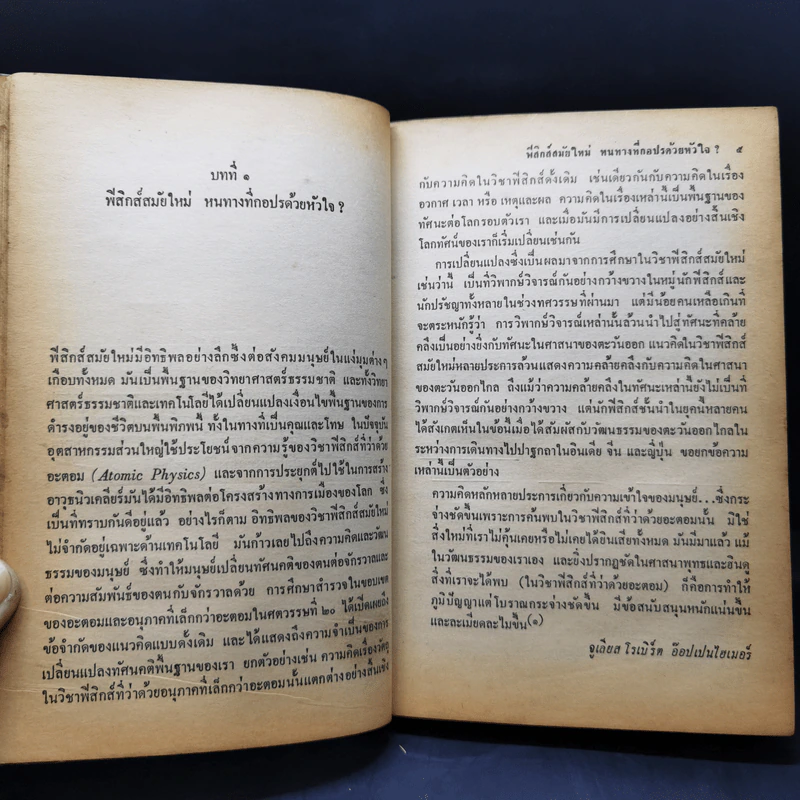 บทที่ ๑
ฟิสิกส์สมัยใหม่ หนทางที่กอปรด้วยหัวใจ ?
ฟิสิกส์สมัยใหม่มีอิทธิพลอย่างลึกซึ้งต่อสังคมมนุษย์ในแง่มุมต่างๆ
เกือบทั้งหมด มันเป็นพื้นฐานของวิทยาศาสตร์ธรรมชาติ และทั้งวิทยา
ศาสตร์ธรรมชาติและเทคโนโลยีได้เปลี่ยนแปลงเงื่อนไขพื้นฐานของการ
ดำรงอยู่ของชีวิตบนพื้นพิภพนี้ ทั้งในทางที่เป็นคุณและโทษ ในปัจจุบัน
อุตสาหกรรมส่วนใหญ่ใช้ประโยชน์จากความรู้ของวิชาฟิสิกส์ที่ว่าด้วย
อะตอม (Atomic Physics) และจากการประยุกต์ไปใช้ในการสร้าง
อาวุธนิวเคลียร์มันได้มีอิทธิพลต่อโครงสร้างทางการเมืองของโลก ซึ่ง
เป็นที่ทราบกันดีอยู่แล้ว อย่างไรก็ตาม อิทธิพลของวิชาฟิสิกส์สมัยใหม่
ไม่จำกัดอยู่เฉพาะด้านเทคโนโลยี มันก้าวเลยไปถึงความคิดและวัฒน
ธรรมของมนุษย์ ซึ่งทำให้มนุษย์เปลี่ยนทัศนคติของตนต่อจักรวาลและ
ต่อความสัมพันธ์ของตนกับจักรวาลด้วย การศึกษาสำรวจในขอบเขต
ของอะตอมและอนุภาคที่เล็กกว่าอะตอมในศตวรรษที่ ๒๐ ได้เปิดเผยถึง
ข้อจำกัดของแนวคิดแบบดั้งเดิม และได้แสดงถึงความจำเป็นของการ
เปลี่ยนแปลงทัศนคติพื้นฐานของเรา ยกตัวอย่างเช่น ความคิดเรื่องวัตถุ
ในวิชาฟิสิกส์ที่ว่าด้วยอนุภาคที่เล็กกว่าอะตอมนั้นแตกต่างอย่างสิ้นเชิง
ฟิสิกส์สมัยใหม่ หนทางที่กอปรด้วยหัวใจ ? ๕
กับความคิดในวิชาฟิสิกส์ดั้งเดิม เช่นเดียวกันกับความคิดในเรื่อง
อวกาศ เวลา หรือ เหตุและผล ความคิดในเรื่องเหล่านี้เป็นพื้นฐานของ
ทัศนะต่อโลกรอบตัวเรา และเมื่อมันมีการเปลี่ยนแปลงอย่างสิ้นเชิง
โลกทัศน์ของเราก็เริ่มเปลี่ยนเช่นกัน
การเปลี่ยนแปลงซึ่งเป็นผลมาจากการศึกษาในวิชาฟิสิกส์สมัยใหม่
เช่นว่านี้ เป็นที่วิพากษ์วิจารณ์กันอย่างกว้างขวางในหมู่นักฟิสิกส์และ
นักปรัชญาทั้งหลายในช่วงทศวรรษที่ผ่านมา แต่มีน้อยคนเหลือเกินที่
จะตระหนักรู้ว่า การวิพากษ์วิจารณ์เหล่านั้นล้วนนำไปสู่ทัศนะที่คล้าย
คลึงเป็นอย่างยิ่งกับทัศนะในศาสนาของตะวันออก แนวคิดในวิชาฟิสิกส์
สมัยใหม่หลายประการล้วนแสดงความคล้ายคลึงกับความคิดในศาสนา
ของตะวันออกไกล ถึงแม้ว่าความคล้ายคลึงในทัศนะเหล่านี้ยังไม่เป็นที่
วิพากษ์วิจารณ์กันอย่างกว้างขวาง แต่นักฟิสิกส์ชั้นนำในยุคนี้หลายคน
ได้สังเกตเห็นในข้อนี้เมื่อได้สัมผัสกับวัฒนธรรมของตะวันออกไกลใน
ระหว่างการเดินทางไปปาฐกถาในอินเดีย จีน และญี่ปุ่น ขอยกข้อความ
เหล่านี้เป็นตัวอย่าง
ความคิดหลักหลายประการเกี่ยวกับความเข้าใจของมนุษย์...ซึ่งกระ
จ่างชัดขึ้นเพราะการค้นพบในวิชาฟิสิกส์ที่ว่าด้วยอะตอมนั้น มิใช่
สิ่งใหม่ที่เราไม่คุ้นเคยหรือไม่เคยได้ยินเสียทั้งหมด มันมีมาแล้ว แม้
ในวัฒนธรรมของเราเอง และยิ่งปรากฏชัดในศาสนาพุทธและฮินดู
สิ่งที่เราจะได้พบ (ในวิชาฟิสิกส์ที่ว่าด้วยอะตอม) ก็คือการทำให้
ภูมิปัญญาแต่โบราณกระจ่างชัดขึ้น มีข้อสนับสนุนหนักแน่นขึ้น
และละเมียดละไมขึ้น(๑)
จูเลียส โรเบิร์ต อ๊อปเปนไฮเมอร์